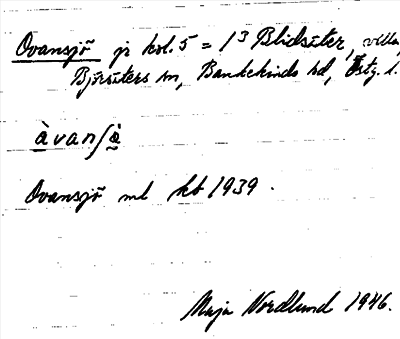 Ovansjö jr kol. 5 = 1³ Blidsäter, villa,
Björsäters sn, Bankekinds hd, Östg. l.
àvanʃö̀
Ovansjö ml kb 1939.
Maja Nordlund 1946.